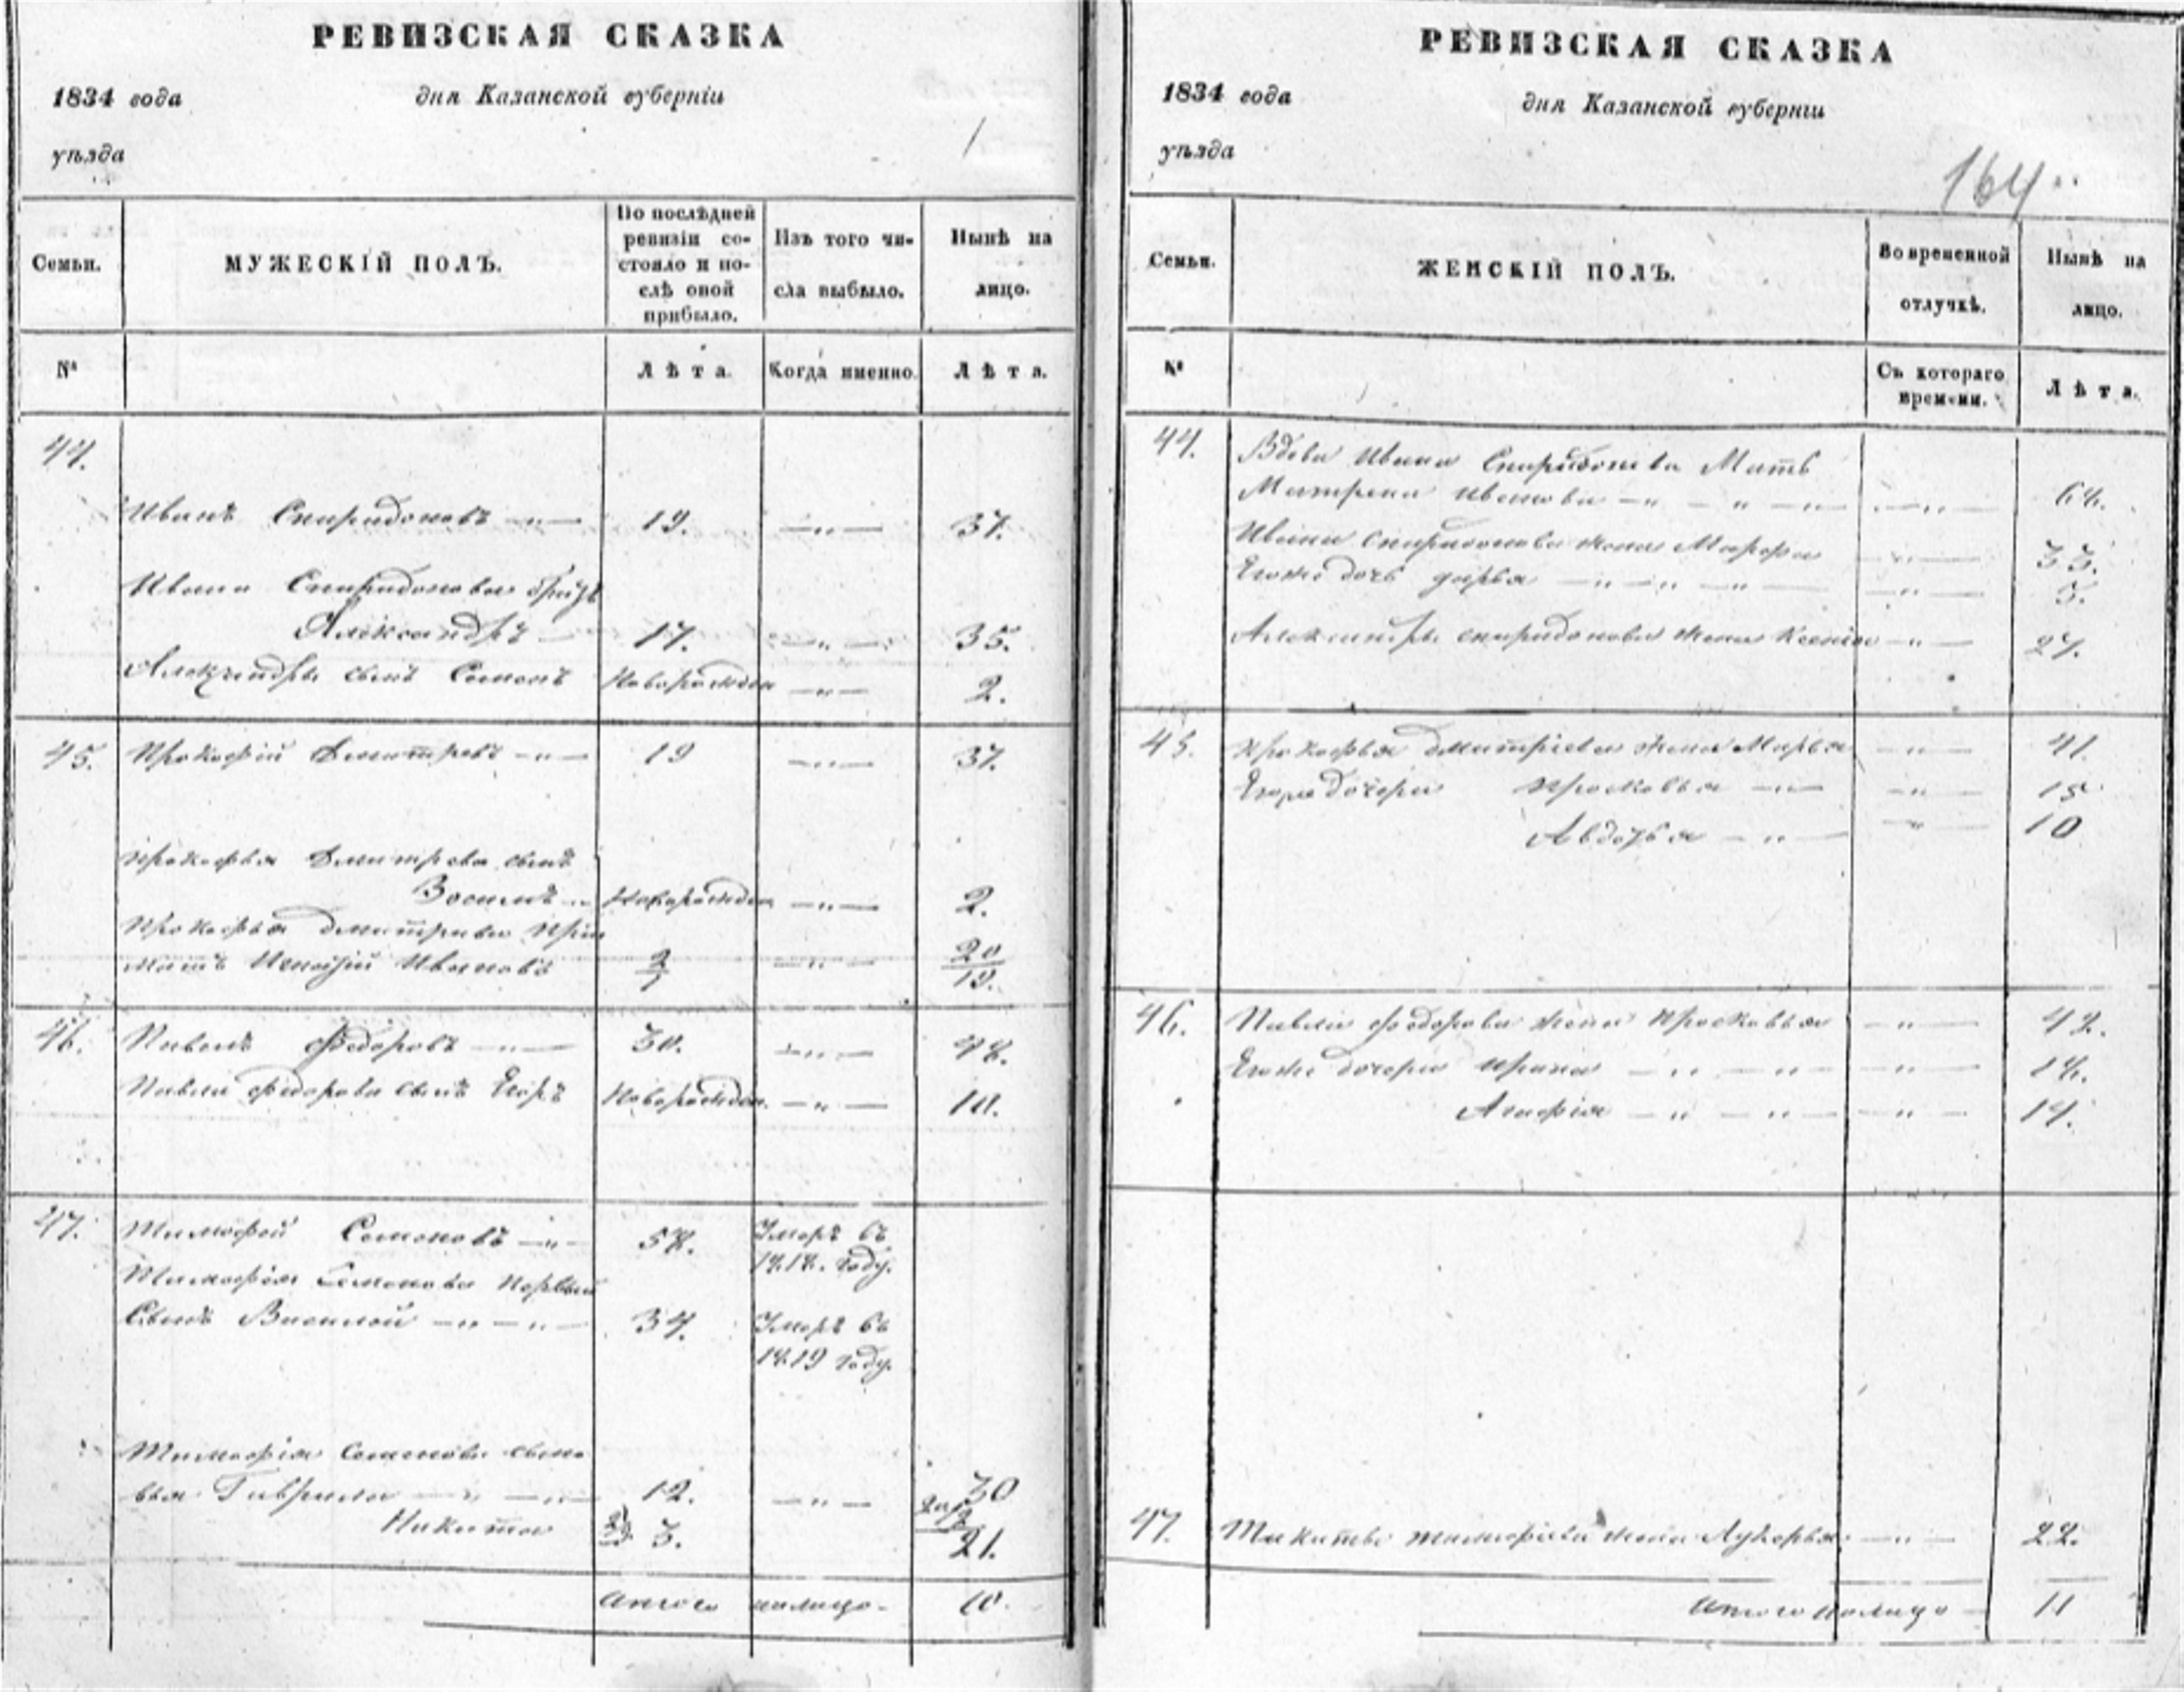 РЕВИЗСКАЯ СКАЗКА
1834 года дня Казанской губерніи
уѣзда
1
Семьи.
МУЖЕСКІЙ ПОЛЪ.
По послѣдней ревизіи со-
стояло и по-
слѣ оной
прибыло.
Изъ того чи-
сла выбыло.
Нынѣ на
лицо.
№
Лѣта.
Когда именно.
Лѣта.
44.
Иванъ Спиридоновъ 19. 37.
Ивана Спиридонова братъ
Александръ 17. 35.
Александра сынъ Семенъ Новорожден 2.
45. Прокофій Дмитревъ 19 37.
Прокофья Дмитрева сынъ
Зосимъ Новорожден 2.
Прокофья Дмитрева
Ивановъ 20
19.
46. Павелъ Федоровъ 30. 48.
Павла Федорова сынъ Егоръ Новорожден. 10.
47. Тимофей Семеновъ 58. Умеръ въ
1818. году.
Тимофея Семенова первый
Сынъ Василей 34. Умеръ въ
1819 году.
Тимофея Семенова сыно
вья Гаврила 12. 30
Никита 3. 21.
Итого налицо 10.
РЕВИЗСКАЯ СКАЗКА
1834 года дня Казанской губерніи
уѣзда
164
Семьи.
ЖЕНСКІЙ ПОЛЪ.
Во временной
отлучкѣ.
Нынѣ на
лицо.
№
Съ котораго
времени.
Лѣта.
44. Вдова Ивана Спиридонова Мать
Матрена Иванова 64.
Ивана Спиридонова жена Марфа 33.
Егоже дочь Дарья 5.
Александра Спиридонова жена Ксенія 27.
45. Прокофья Дмитріева жена Марья 41.
Егоже дочери Просковья 15
Авдотья 10
46. Павла Федорова жена Просковья 42.
Егоже дочери Ирина 18.
Агафія 14.
47. Никиты Тимофеева жена Лукерья 22.
Итого налицо 11